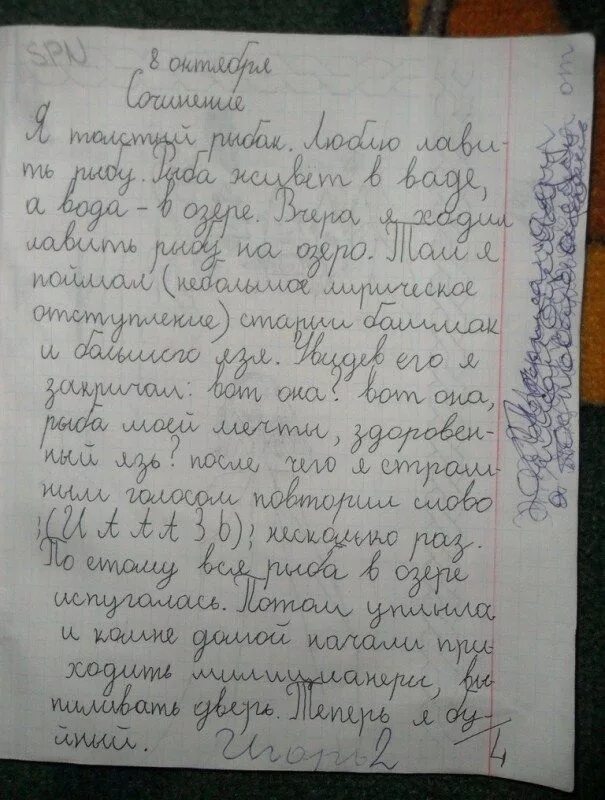 SPN
8 октября
Сочинение
Я толстый рыбак. Люблю лави-
ть рыбу. Рыба живёт в ваде,
а вода - в озере. Вчера я ходил
лавить рыбу на озеро. Там я
поймал (небольшое лирическое
отступление) старии башмак
и большого язя. Увидев его я
закричал: вот она? вот она,
рыба моей мечты, здоровен-
ный язь? после чего я страш-
ным голосом повторил слово
;(И А А А З Ь); несколько раз.
По етому вся рыба в озере
испугалась. Потом уплыла
и комне домой начали при
ходить милицианеры, вы
пиливать дверь. Теперь я бу-
йный.
Игорь 2
/4
от